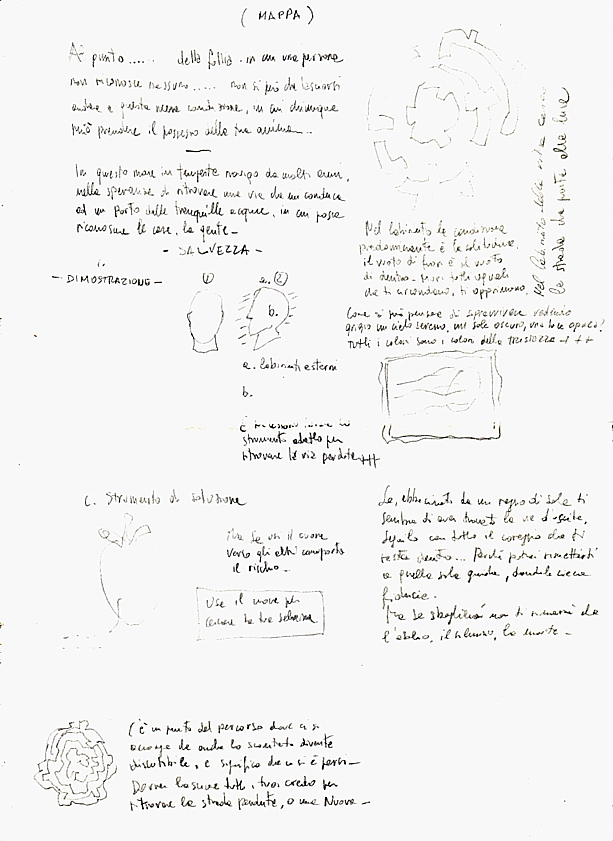 ( MAPPA )
Al punto..... della follia. in cui una persona
non riconosce nessuno..... non si può che lasciarsi
andare a questa mera condizione, in cui chiunque
può prendere il possesso della tua anima...
In questo mare in tempesta navigo da molti anni,
nella speranza di ritrovare una via che mi conduca
ad un Porto dalle tranquille acque, in cui possa
riconoscere le cose, la gente -
- SALVEZZA -
- DIMOSTRAZIONE -
1
a. 2
b.
a. labirinti esterni
b.
è necessario
strumento adatto per
ritrovare la via perduta
Nel labirinto la condizione
predominante è la solitudine.
il vuoto di fuori è il vuoto
di dentro. muri tutti uguali
che ti circondano, ti opprimono.
Nel labirinto della vita
la strada che porta alla luce
Come si può pensare di sopravvivere vedendo
grigio un cielo sereno, un sole oscuro, una luce opaca?
Tutti i colori sono i colori della tristezza
c. Strumento di soluzione
Ma se usi il cuore
verso gli altri comporta
il rischio -
Usa il cuore per
cercare la tua salvezza
La, abbacinato da un raggio di sole ti
sembra di aver trovato la via d'uscita,
Seguilo con tutto il coraggio che ti
resta dentro... Perché potrai rimetterti
a quella sola guida, dandole cieca
fiducia.
Ma se sbaglierai non ti rimarrà che
l'oblio, il silenzio, la morte -
C'è un punto del percorso dove ci si
accorge che anche lo scontato diventa
discutibile, e significa che ci si è persi -
Dover lasciare tutti i tuoi credo per
ritrovare la strada perduta, o una Nuova -